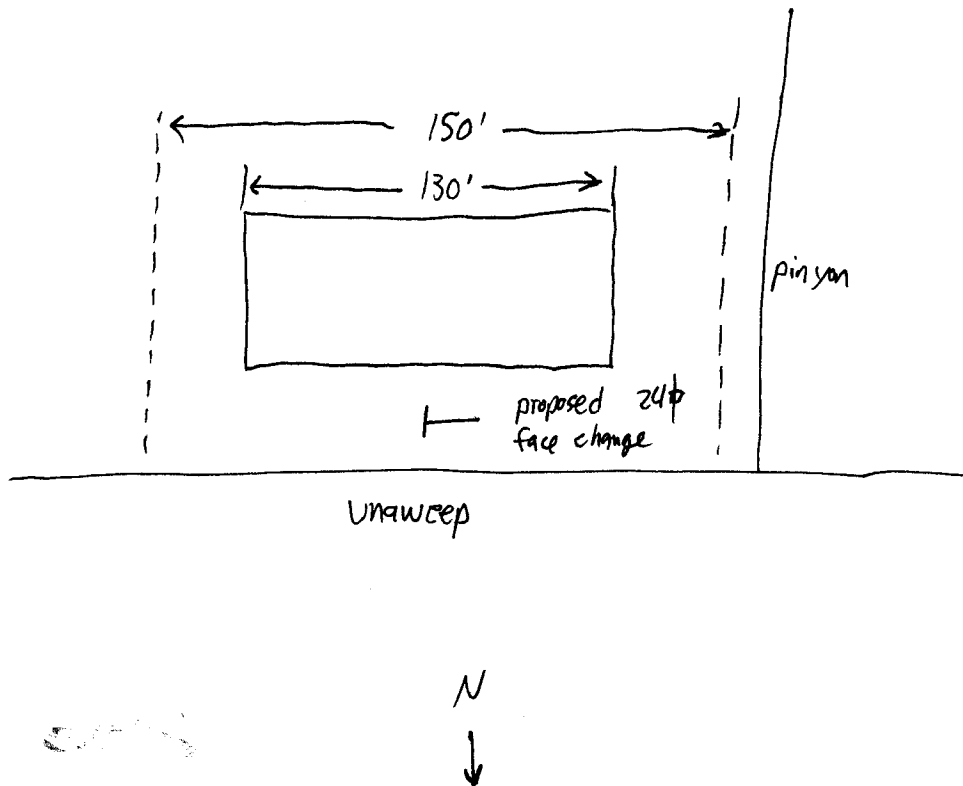 150'
130'
pinyon
proposed 24⌀
face change
Unaweep
N